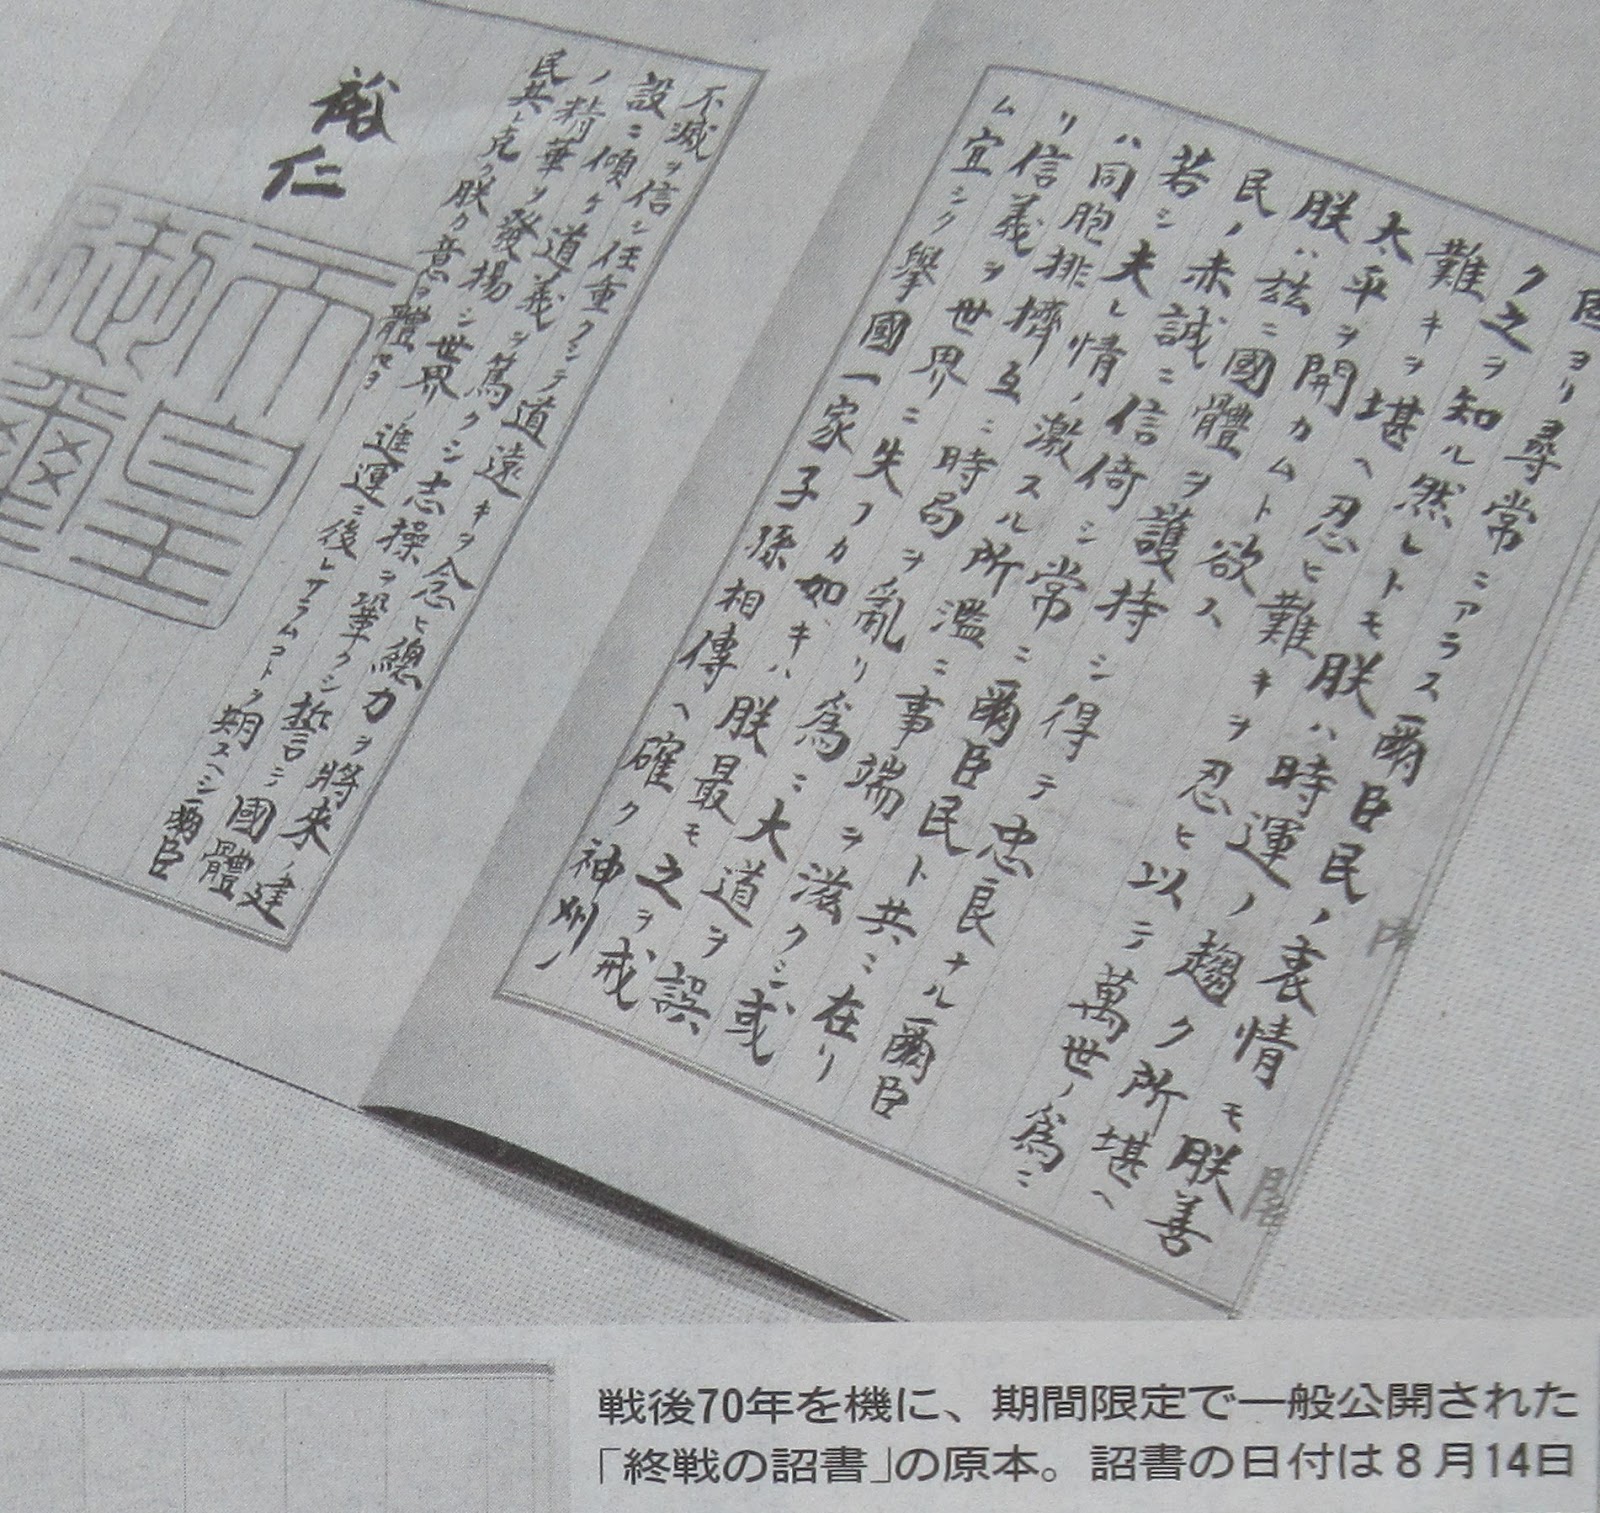 固ヨリ尋常ニアラス爾臣民ノ衷情モ朕善
ク之ヲ知ル然レトモ朕ハ時運ノ趨ク所堪ヘ
難キヲ堪ヘ忍ヒ難キヲ忍ヒ以テ萬世ノ爲ニ
太平ヲ開カムト欲ス
朕ハ玆ニ國體ヲ護持シ得テ忠良ナル爾臣
民ノ赤誠ニ信倚シ常ニ爾臣民ト共ニ在リ
若シ夫レ情ノ激スル所濫ニ事端ヲ滋クシ或
ハ同胞排擠互ニ時局ヲ亂リ爲ニ大道ヲ誤
リ信義ヲ世界ニ失フカ如キハ朕最モ之ヲ戒
ム宜シク擧國一家子孫相傳ヘ確ク神州ノ
内閣
不滅ヲ信シ任重クシテ道遠キヲ念ヒ總力ヲ將來ノ建
設ニ傾ケ道義ヲ篤クシ志操ヲ鞏クシ誓テ國體
ノ精華ヲ發揚シ世界ノ進運ニ後レサラムコトヲ期スヘシ爾臣
民其レ克ク朕カ意ヲ體セヨ
裕仁
天皇
御璽
戦後70年を機に、期間限定で一般公開された
「終戦の詔書」の原本。詔書の日付は8月14日